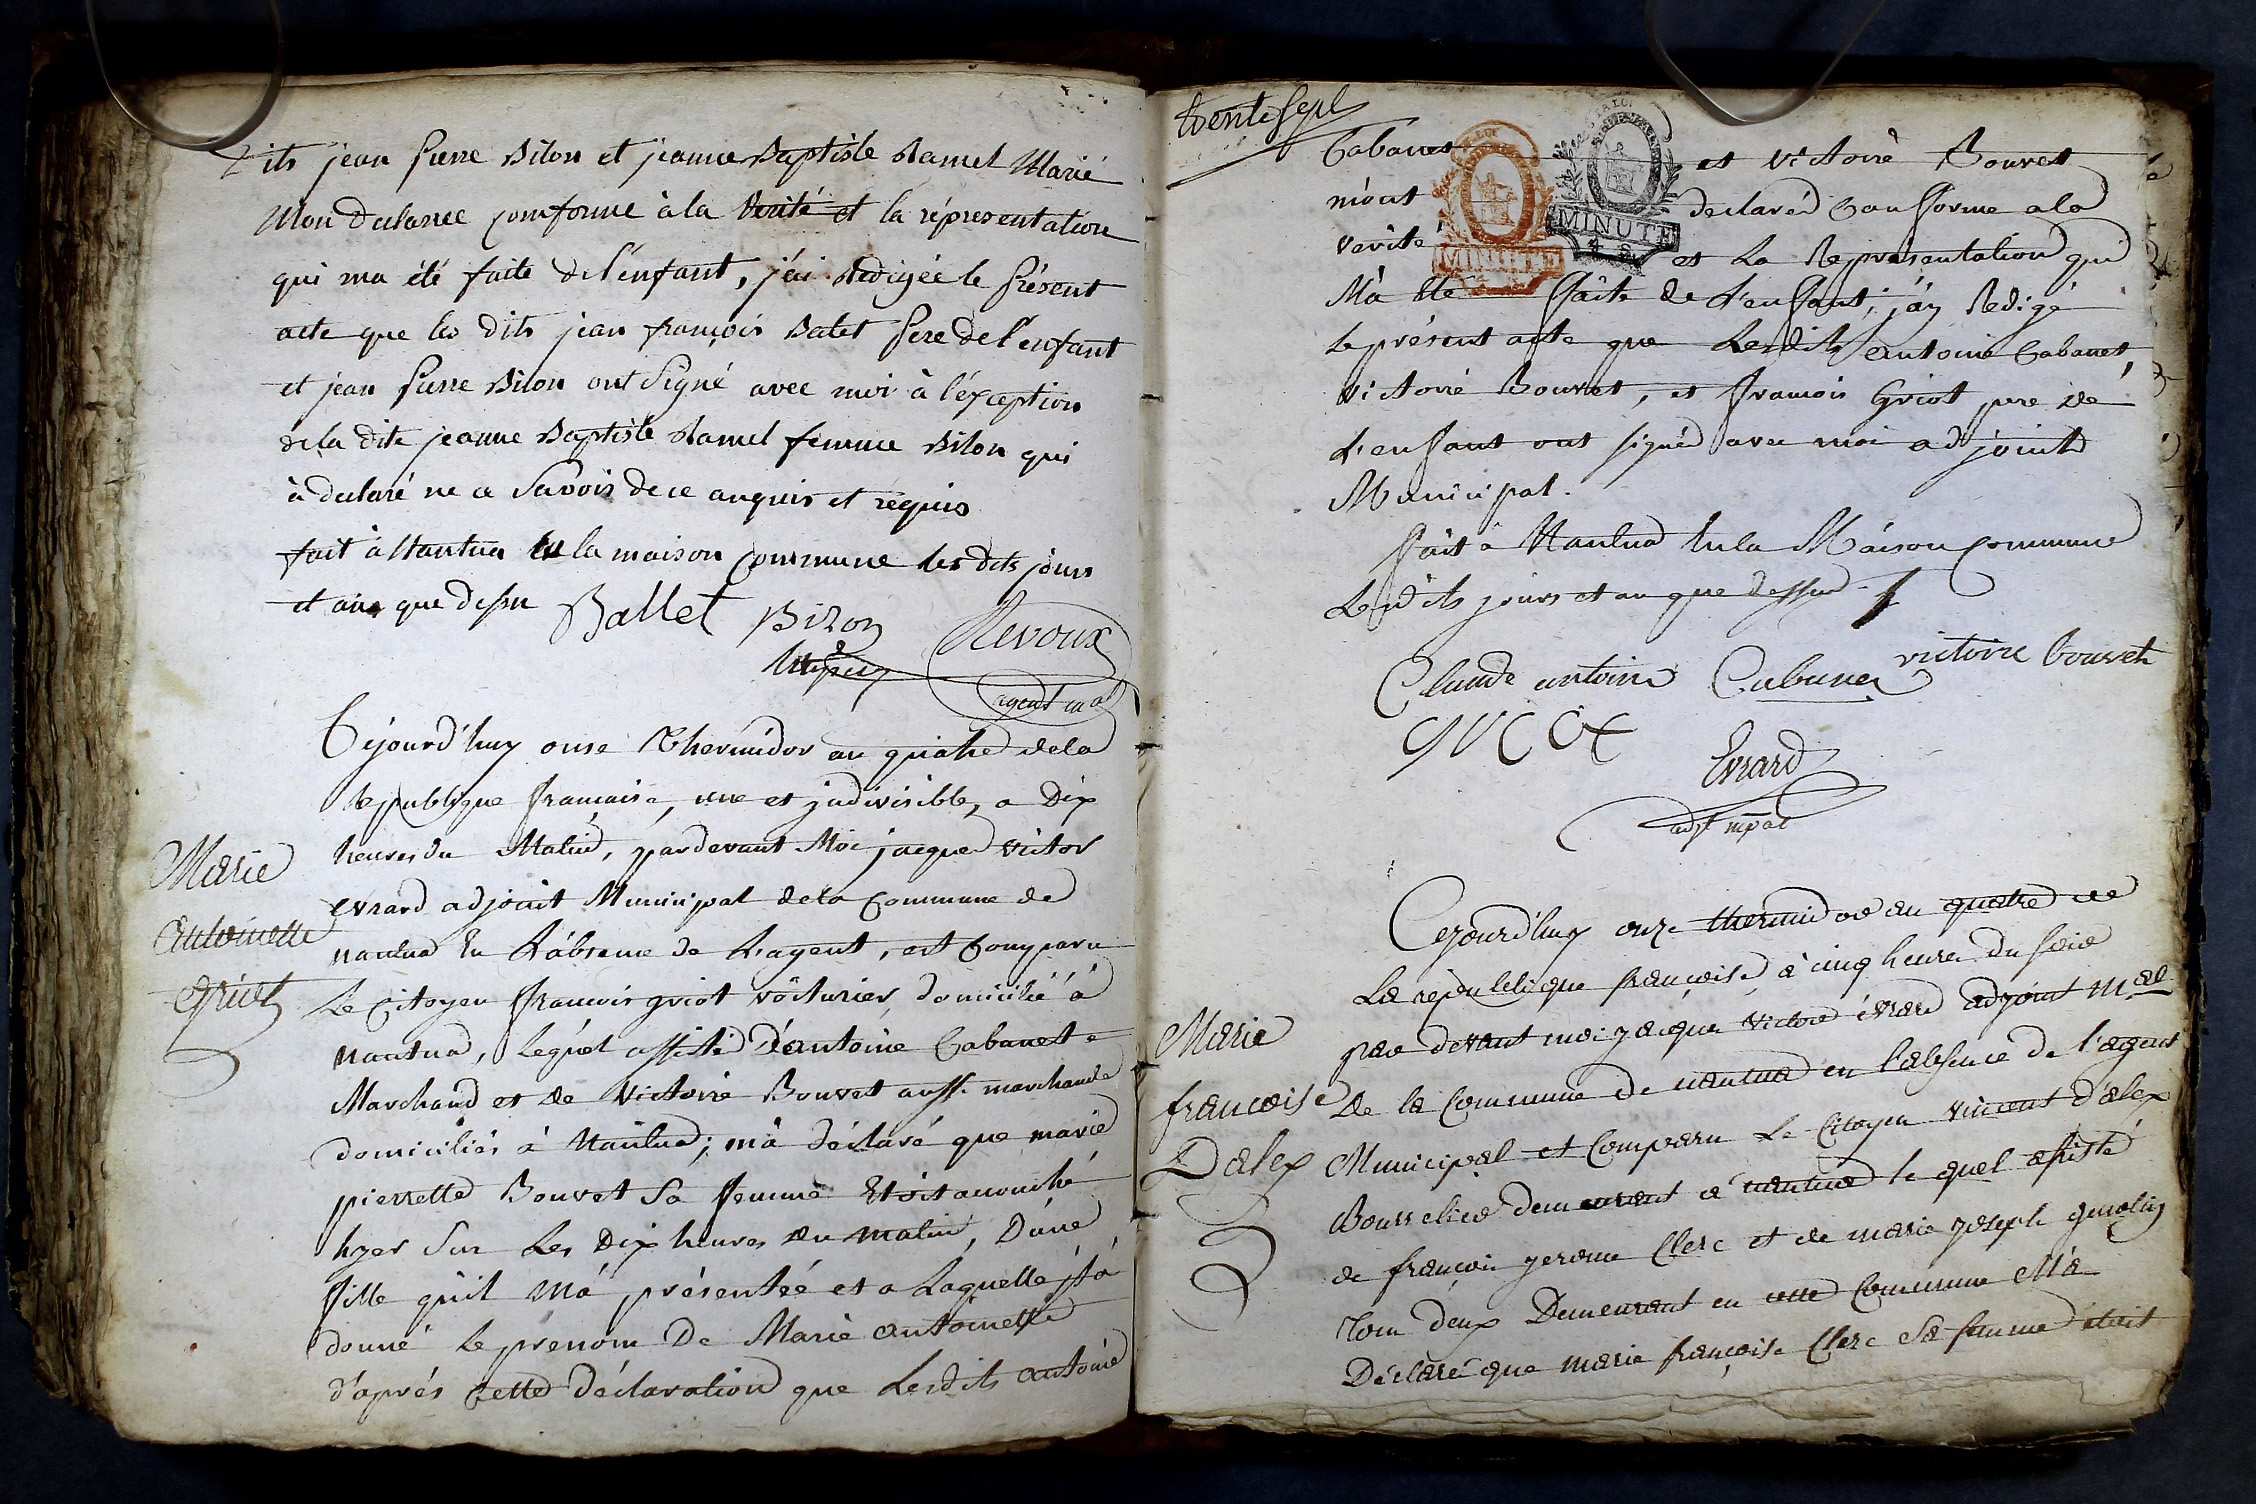 dits jean pierre Bilon et jeanne Baptiste Ramel Marié
M'ont déclarée comforme à la Verité et la réprésentation
qui ma été faite de l'enfant, j'ai Rédigée le présent
acte que les dits jean françois Balet pere de l'enfant
et jean pierre Bilon ont Signé avec moi à l'éxception
de la dite jeanne Baptiste Ramel femme Bilon qui
à declaré ne ce Savoir de ce anquis et requis
fait à Nantua en la maison Commune les dits jours
et an que dessu Ballet Bilon Nevoux
agent m al
Cejourd'huy onse Thermidor an quatre de la
Republique française, une et jndivisible, a Dix
heures du Matin, pardevant Moi jacque victor
evrard adjoint Municipal de la Commune de
nantua En L'absence de L'agent, est Comparu
Le Citoyen françois griot voiturier, domicilié à
Nantua, Lequel assisté D'antoine Cabanet
Marchand et de Victoire Bouvet aussi marchande
domiciliés à Nantua; m'à déclaré que marie
pierrette Bouvet Sa femme Etoit accouché
hyer Sur Les Dix heures du matin, D'une
fille qu'il M'a présentée et a Laquelle jl a
donné Le prenom De Marie antoinette
d'aprés Cette déclaration que Lesdits antoine
Marie
antoinette
griot
trente sept
Cabanet et Victoire Bouvet
m'ont declaréd Conforme a la
verité et La Representation qui
M'a Eté faite de L'enfant; j'ay Redigé
Le présent acte que Lesdits antoine Cabanet,
Victoire Bouvet, et françois Griot pere de
L'enfant ont signéd avec moi adjoint
Municipal.
fait à Nantua En la Maison commune
Lesdits jours et an que dessus
MINUTE
MINUTE
Claude antoine Cabanet victoire bouvet
griot
Evrard
adjt mpal
Cejourd'huy onze thermidor an quatre de
La république française à cinq heures du soir
par devant moi jacque victor évrard adjoint mal
de la Commune de nantua en l'absence de l'agent
Municipal et Comparu Le Citoyen vincent d'alex
Bourrelier demeurant a nantua le quel assisté
de françois jerome Clerc et de marie joseph
Tous deux Demeurant en cette Commune M'a
Déclaré que marie françoise Clerc Sa femme était
Marie
françoise
Dalex